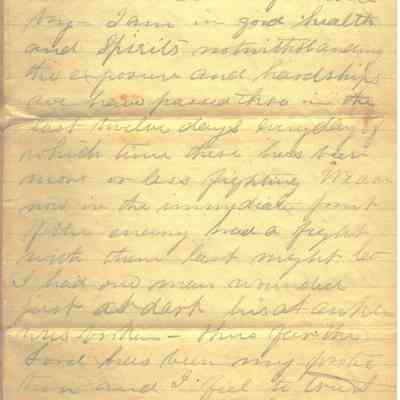 try - I am in good health
and Spirits notwithstanding
the exposure and hardships
we have passed thro in the
last twelve days every day of
which time there has been
more or less fighting We are
now in the immediate front
of the enemy had a fight
with them last night
I had one man wounded
just at dark his
was broken - thus far the
Lord has been my protec
tion and I feel to trust